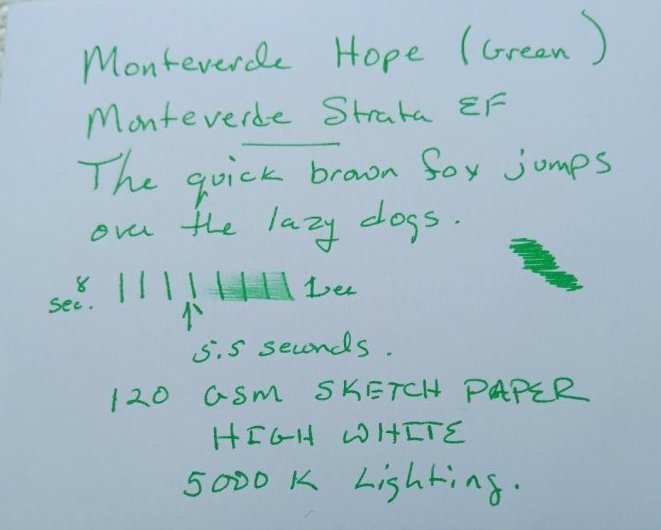 Monteverde Hope (Green)
Monteverde Strata EF
The quick brown fox jumps
over the lazy dogs.
8 sec. 1 sec
5.5 seconds.
120 GSM SKETCH PAPER
HIGH WHITE
5000 K Lighting.